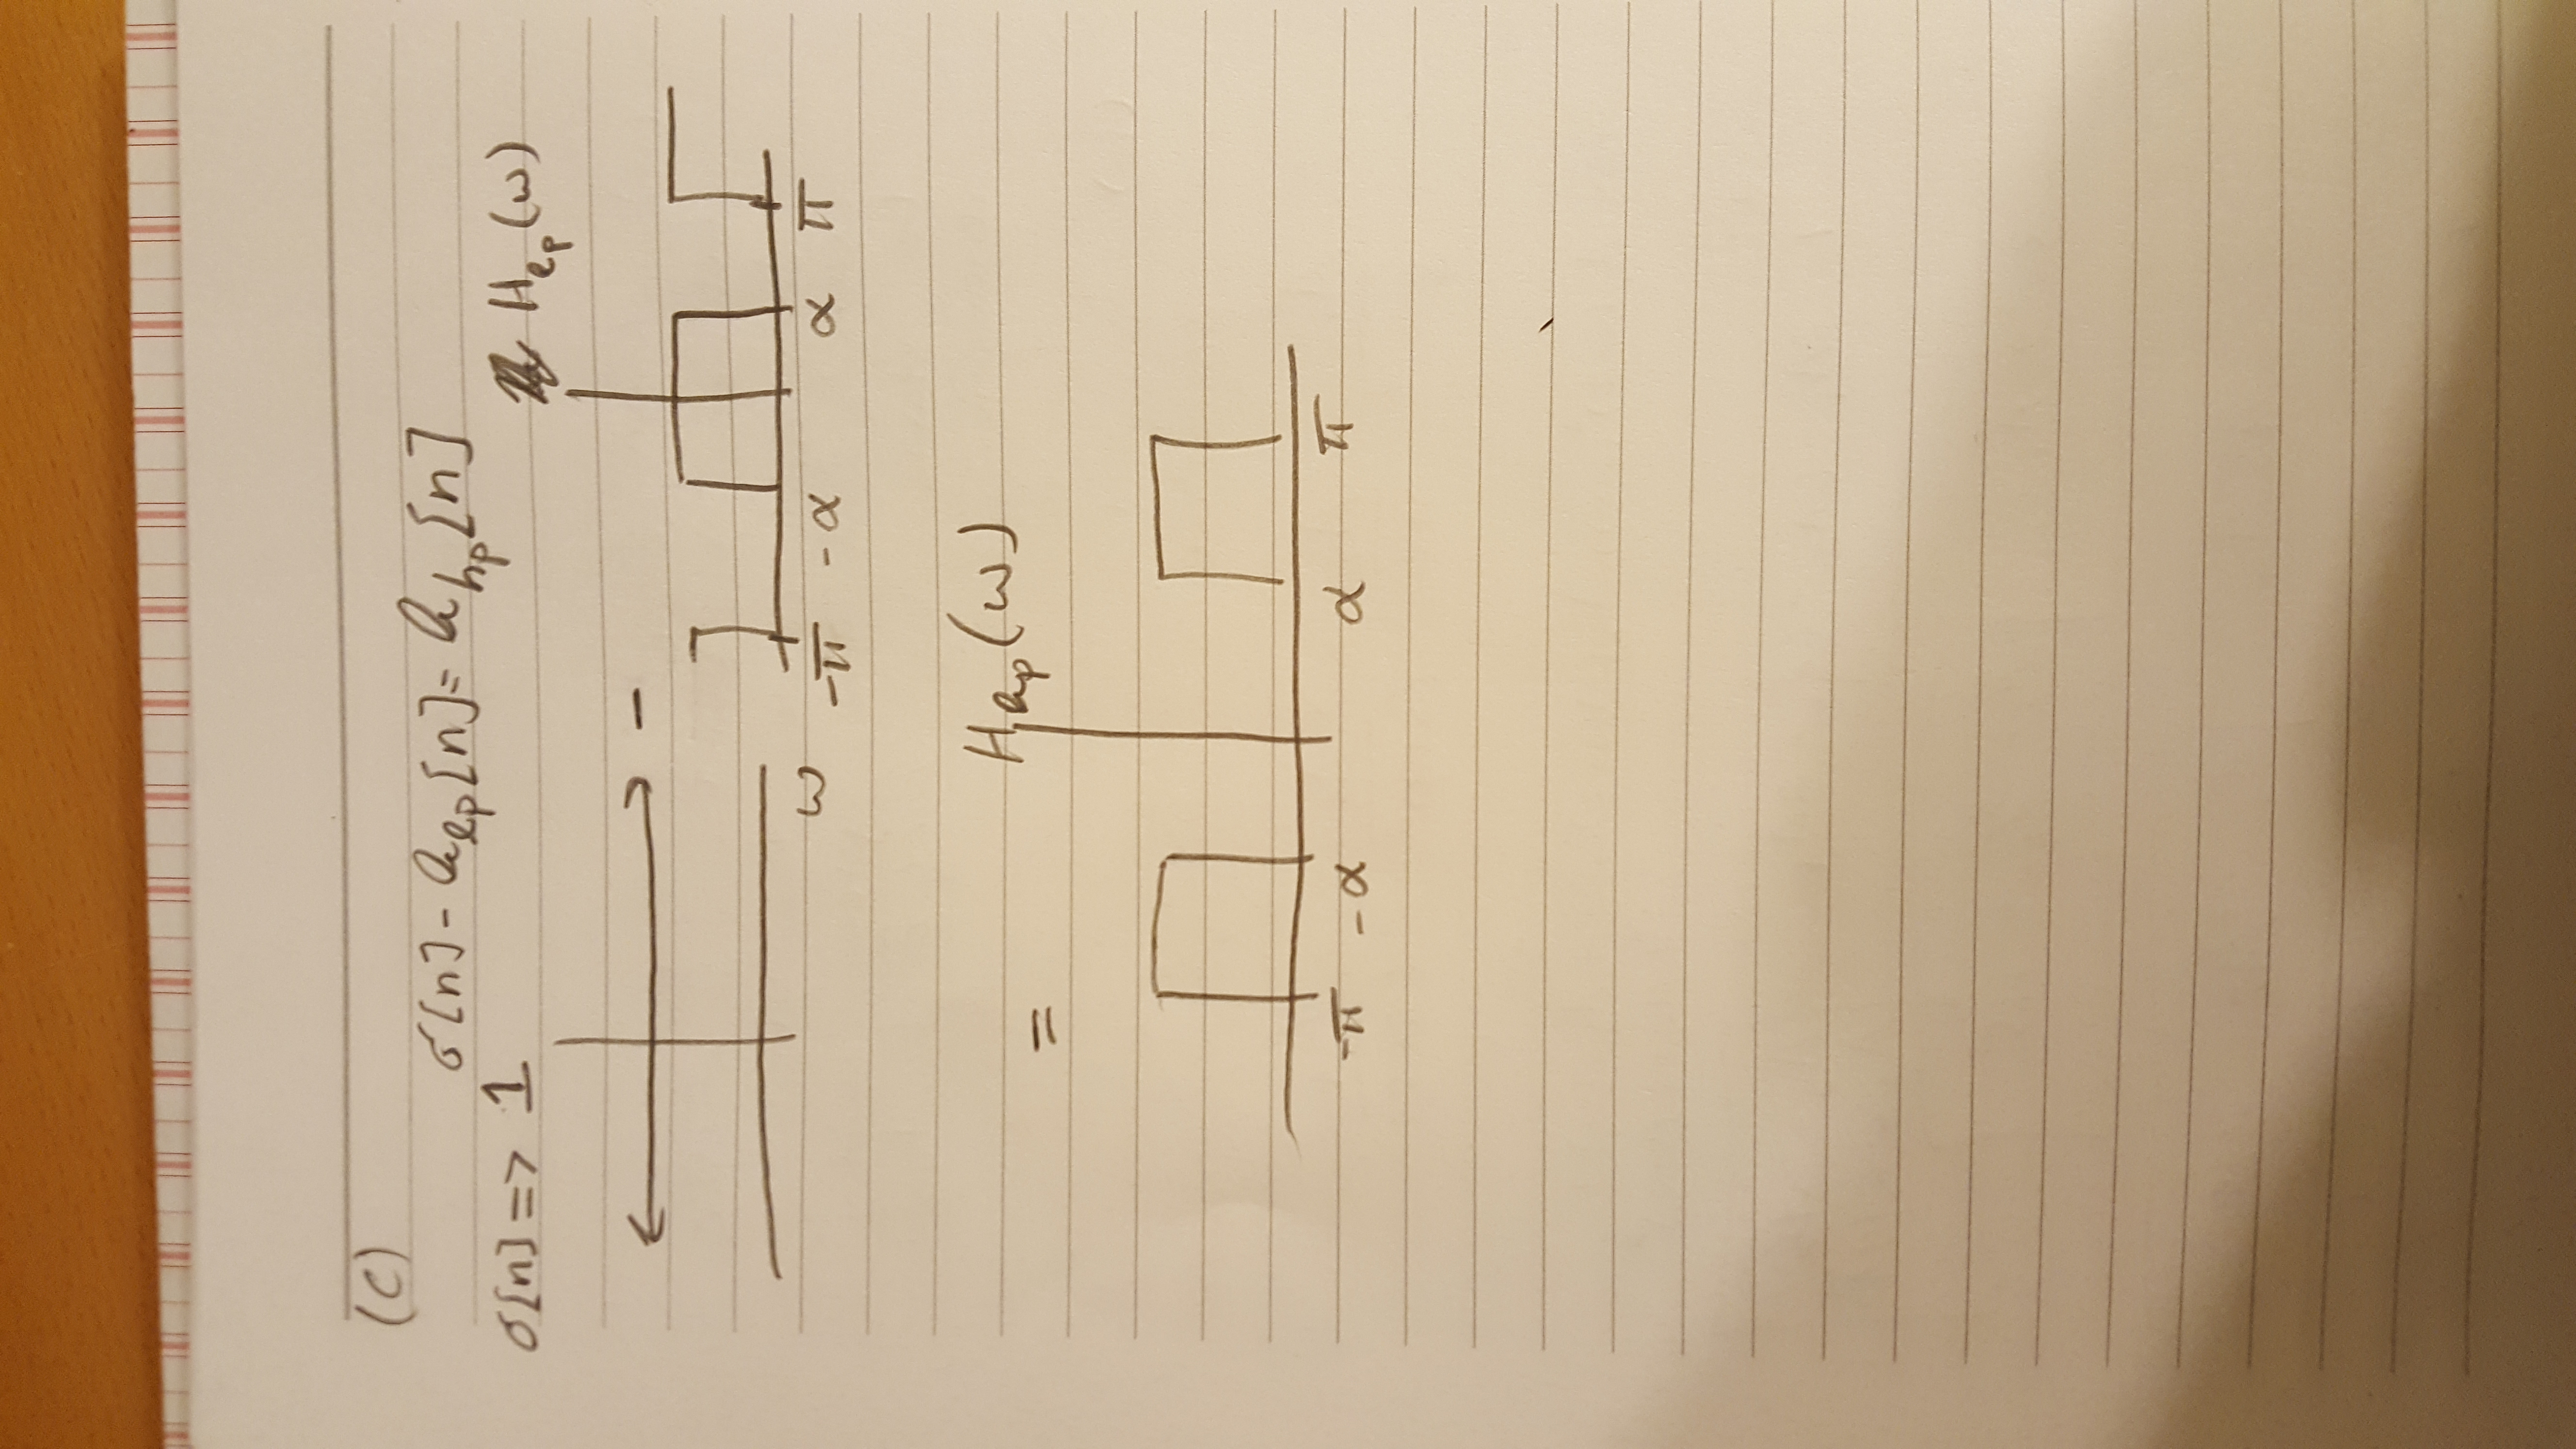 (C)
δ[n] - h_lp[n] = h_hp[n]
δ[n] => 1
H_lp(ω)
-
ω
-π -α α π
=
H_hp(ω)
-π -α α π